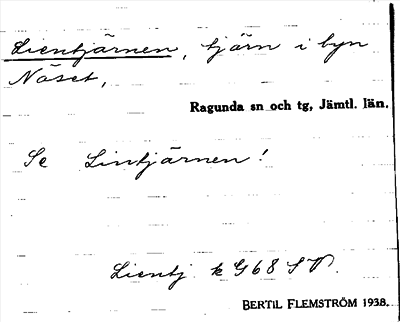 Lientjärnen, tjärn i byn
Näset,
Ragunda sn och tg, Jämtl. län.
Se Lintjärnen!
Lientj k G68 SV.
BERTIL FLEMSTRÖM 1938.